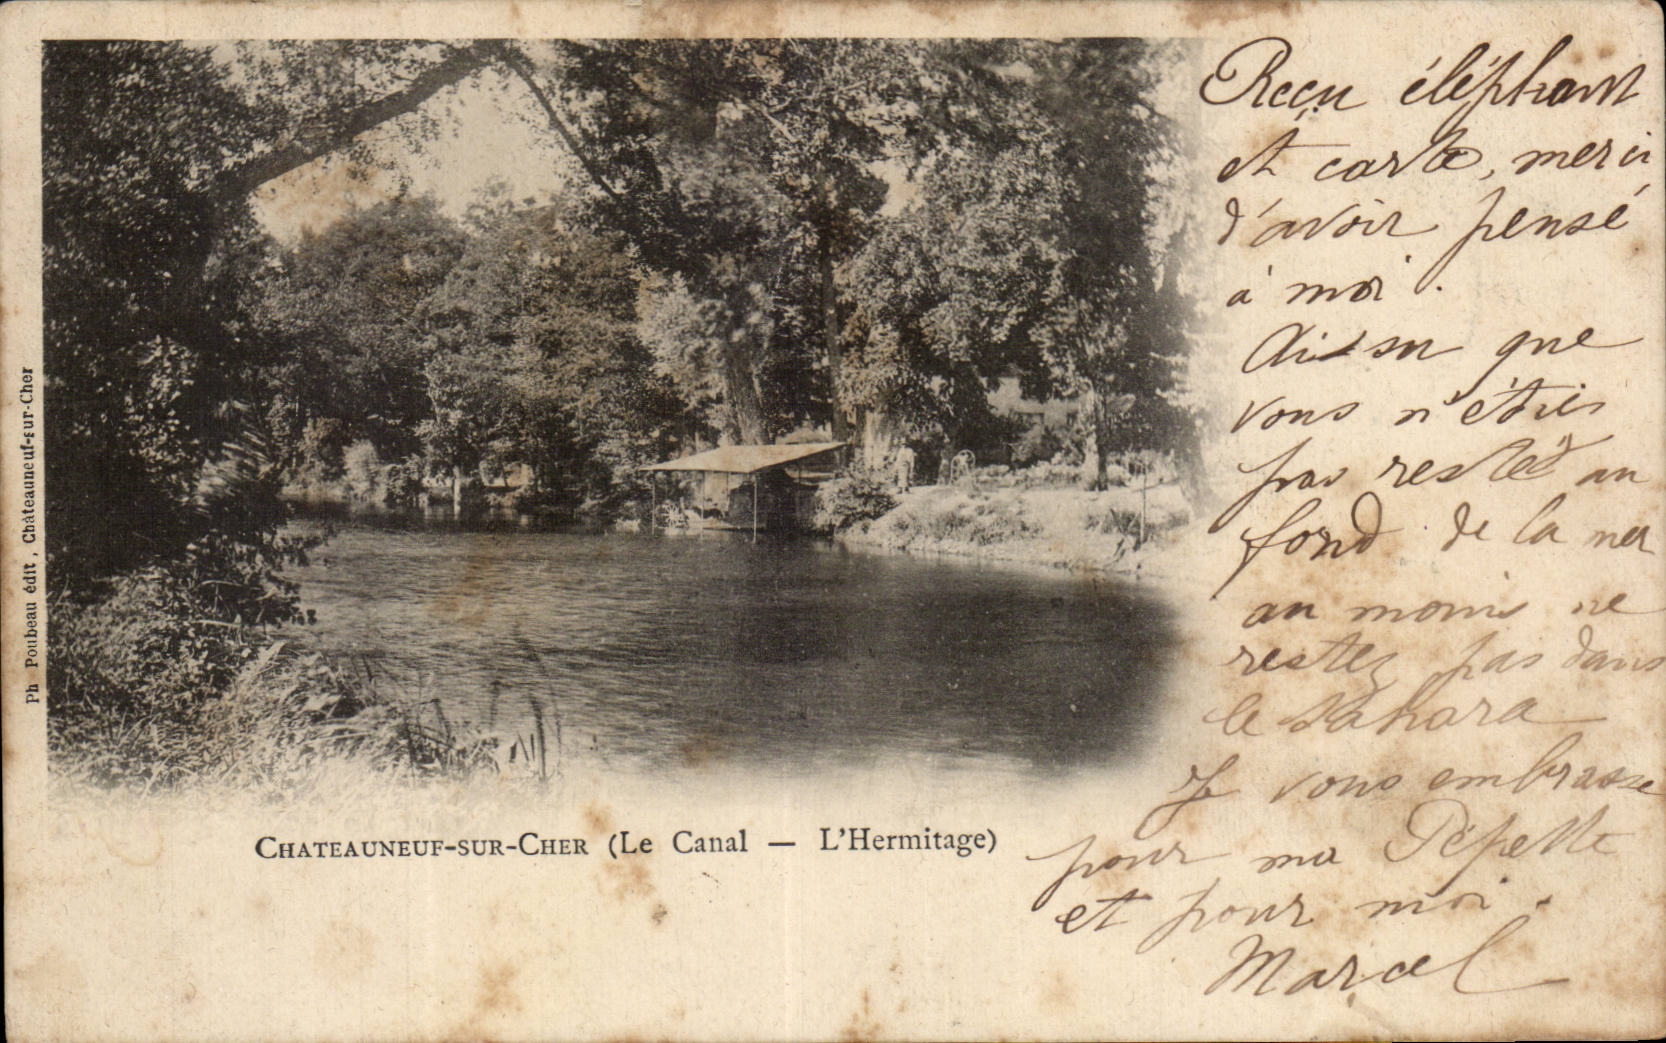 Ph Poubeau édit, Châteauneuf-sur-Cher
CHATEAUNEUF-SUR-CHER (Le Canal — L'Hermitage)
Reçu éléphant
et carte, merci
d'avoir pensé
à moi.
que
vous n'étiez
pas resté au
fond de la mer
au moins ne
restez pas dans
le Sahara
Je vous embrasse
pour ma Pépette
et pour moi.
Marcel